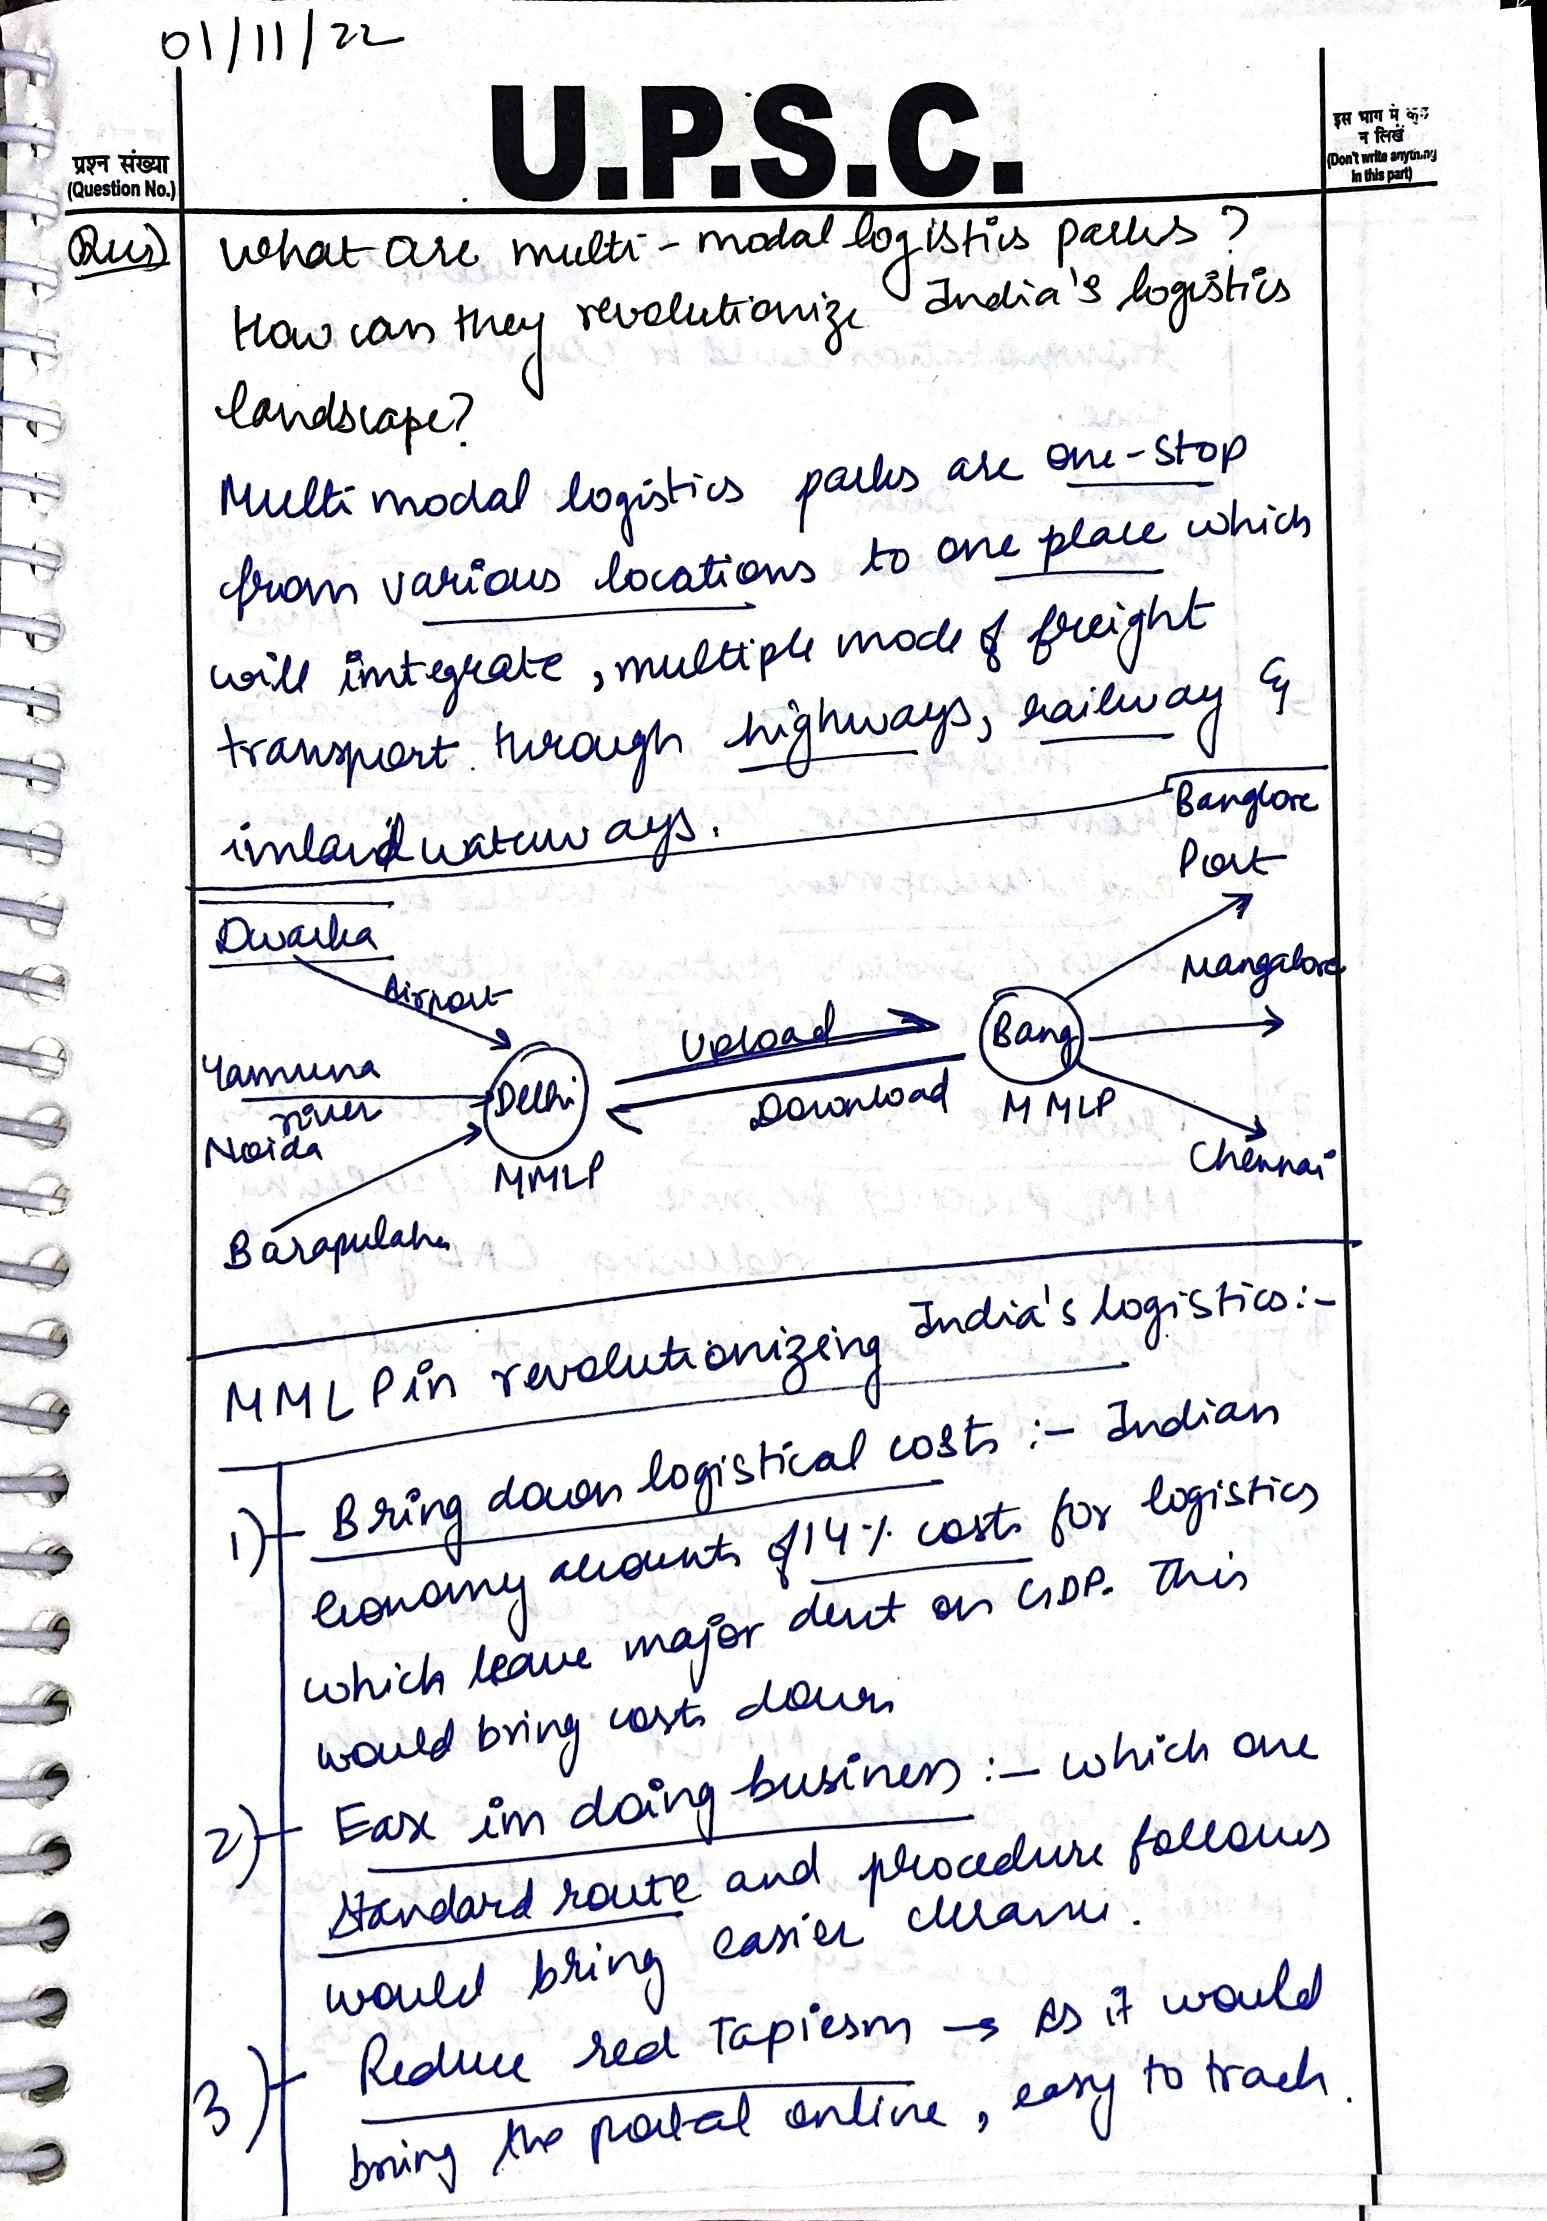 01/11/22
U.P.S.C.
प्रश्न संख्या
(Question No.)
इस भाग में कुछ
न लिखें
(Don't write anything
in this part)
Ques) What are multi-modal logistics parks?
How can they revolutionize India's logistics
landscape?
Multi modal logistics parks are one-stop
from various locations to one place which
will integrate, multiple mode of freight
transport through highways, railway &
inland waterways.
Banglore
Port
Dwarka
Airport
Mangalore
Upload
Bang
Yamuna
river
Delhi
Download
MMLP
Noida
MMLP
Chennai
Barapulah
MMLP in revolutionizing India's logistics:-
1) Bring down logistical costs :- Indian
Economy accounts of 14% costs for logistics
which leave major dent on GDP. This
would bring costs down
2) Ease in doing business :- which one
standard route and procedure follows
would bring easier
3) Reduce red Tapiesm → As it would
bring the portal online, easy to track.